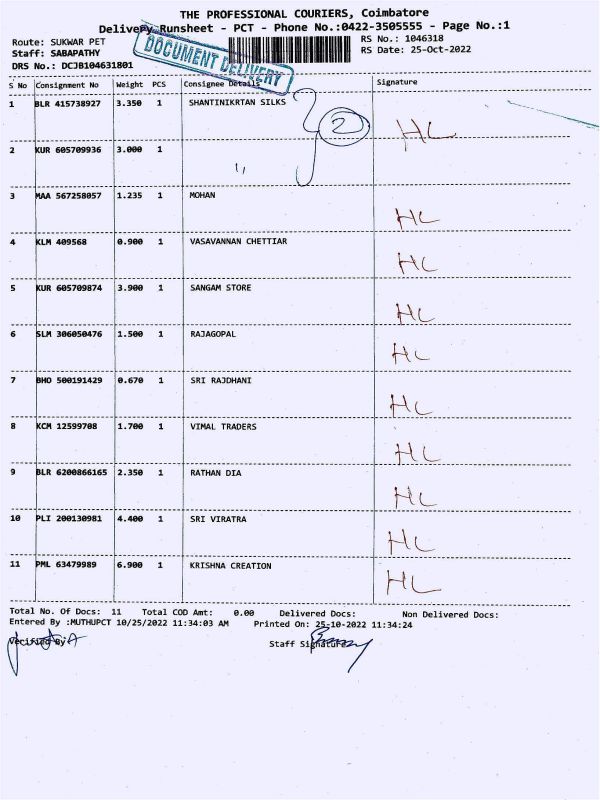 THE PROFESSIONAL COURIERS, Coimbatore
Delivery Runsheet - PCT - Phone No.:0422-3505555 - Page No.:1
Route: SUKWAR PET
RS No.: 1046318
Staff: SABAPATHY
RS Date: 25-Oct-2022
DRS No.: DCJB104631801
DOCUMENT DELIVERY
S No Consignment No Weight PCS Consignee Details Signature
1 BLR 415738927 3.350 1 SHANTINIKRTAN SILKS HL
2
2 KUR 605709936 3.000 1 ,,
3 MAA 567258057 1.235 1 MOHAN HL
4 KLM 409568 0.900 1 VASAVANNAN CHETTIAR HL
5 KUR 605709874 3.900 1 SANGAM STORE HL
6 SLM 306050476 1.500 1 RAJAGOPAL HL
7 BHO 500191429 0.670 1 SRI RAJDHANI HL
8 KCM 12599708 1.700 1 VIMAL TRADERS HL
9 BLR 6200866165 2.350 1 RATHAN DIA HL
10 PLI 200130981 4.400 1 SRI VIRATRA HL
11 PML 63479989 6.900 1 KRISHNA CREATION HL
Total No. Of Docs: 11 Total COD Amt: 0.00 Delivered Docs: Non Delivered Docs:
Entered By :MUTHUPCT 10/25/2022 11:34:03 AM Printed On: 25-10-2022 11:34:24
Verified By: Staff Signature